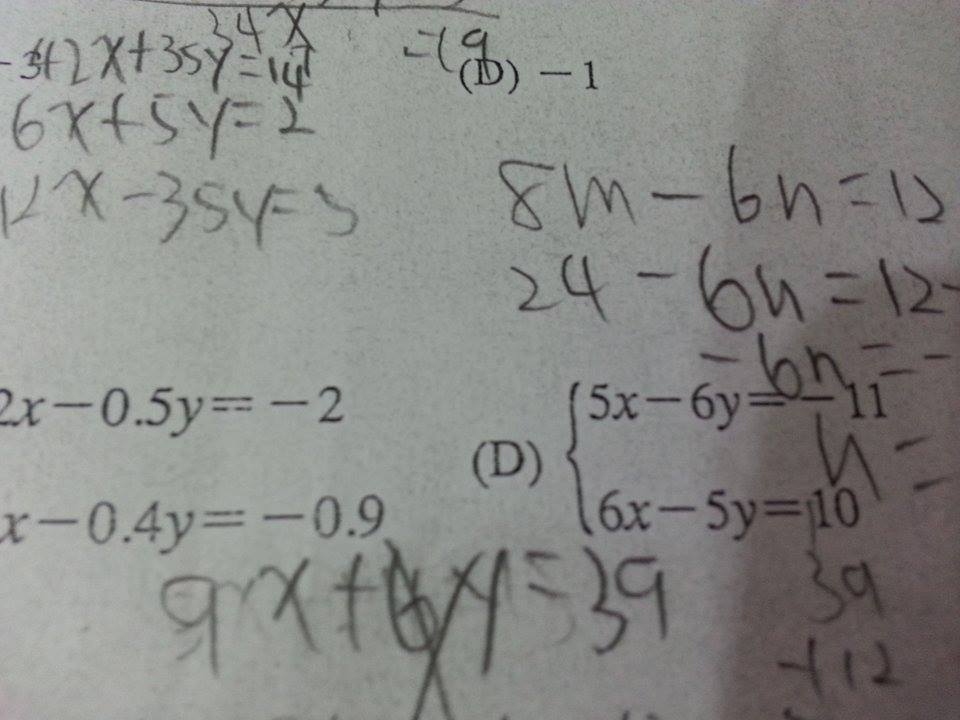 34x
12x+35y=14
=19
(D) -1
6x+5y=2
12x-35y=5
8m-6n=12
24-6n=12
-6n=-
2x-0.5y=-2
(D) {5x-6y=-11
n=-
x-0.4y=-0.9
6x-5y=10
9x+6y=39
39
+12